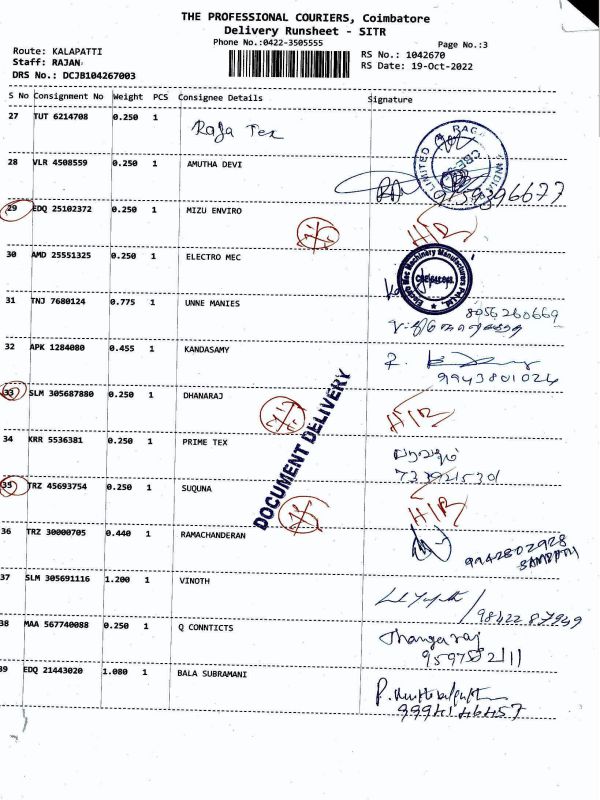 THE PROFESSIONAL COURIERS, Coimbatore
Delivery Runsheet - SITR
Phone No.:0422-3505555
Page No.:3
Route: KALAPATTI
Staff: RAJAN
DRS No.: DCJB104267003
RS No.: 1042670
RS Date: 19-Oct-2022
S No Consignment No Weight PCS Consignee Details Signature
27 TUT 6214708 0.250 1 Raja Tex
28 VLR 4508559 0.250 1 AMUTHA DEVI
9159396677
29 EDQ 25102372 0.250 1 MIZU ENVIRO
H/R
30 AMD 25551325 0.250 1 ELECTRO MEC
31 TNJ 7680124 0.775 1 UNNE MANIES
8056260669
32 APK 1284080 0.455 1 KANDASAMY
9943801024
33 SLM 305687880 0.250 1 DHANARAJ
H/R
DOCUMENT DELIVERY
34 KRR 5536381 0.250 1 PRIME TEX
35 TRZ 45693754 0.250 1 SUQUNA
H/R
36 TRZ 30000705 0.440 1 RAMACHANDERAN
9942802928
SAMPATH
37 SLM 305691116 1.200 1 VINOTH
98422 87949
38 MAA 567740088 0.250 1 Q CONNTICTS
Thangaraj
39 EDQ 21443020 1.080 1 BALA SUBRAMANI
9994146457